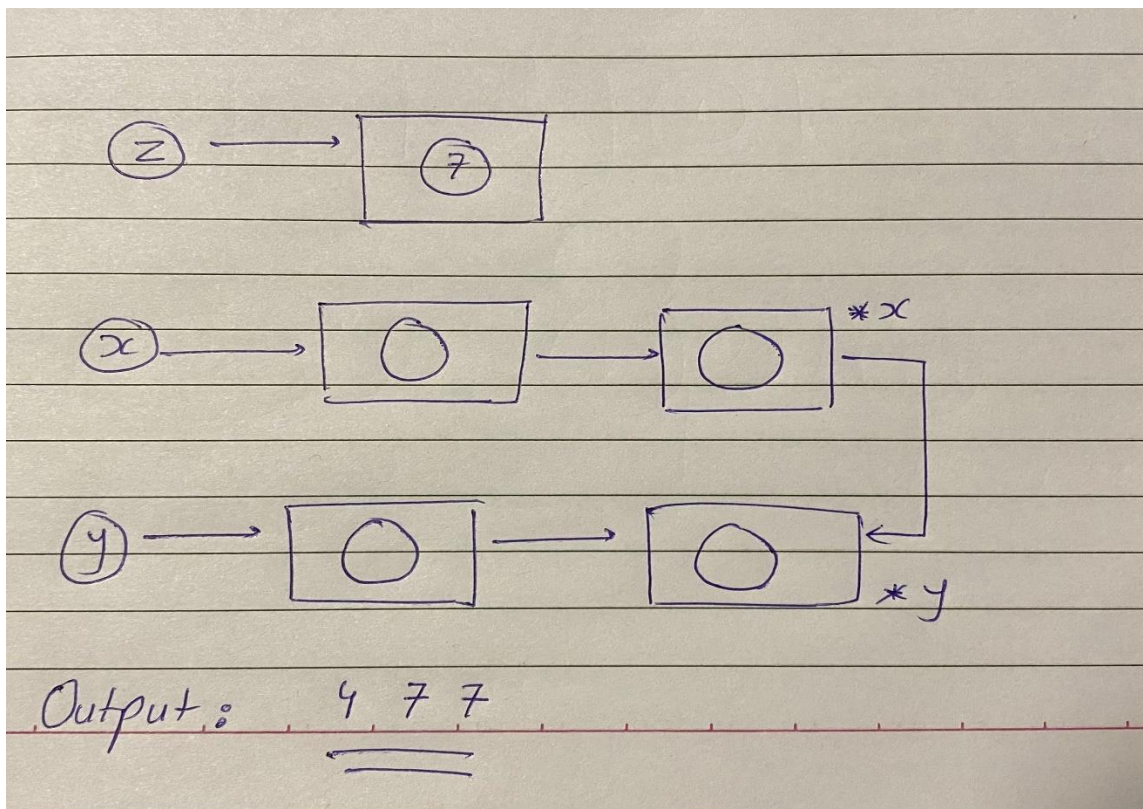 z 7
x *x
y
*y
Output: 4 7 7